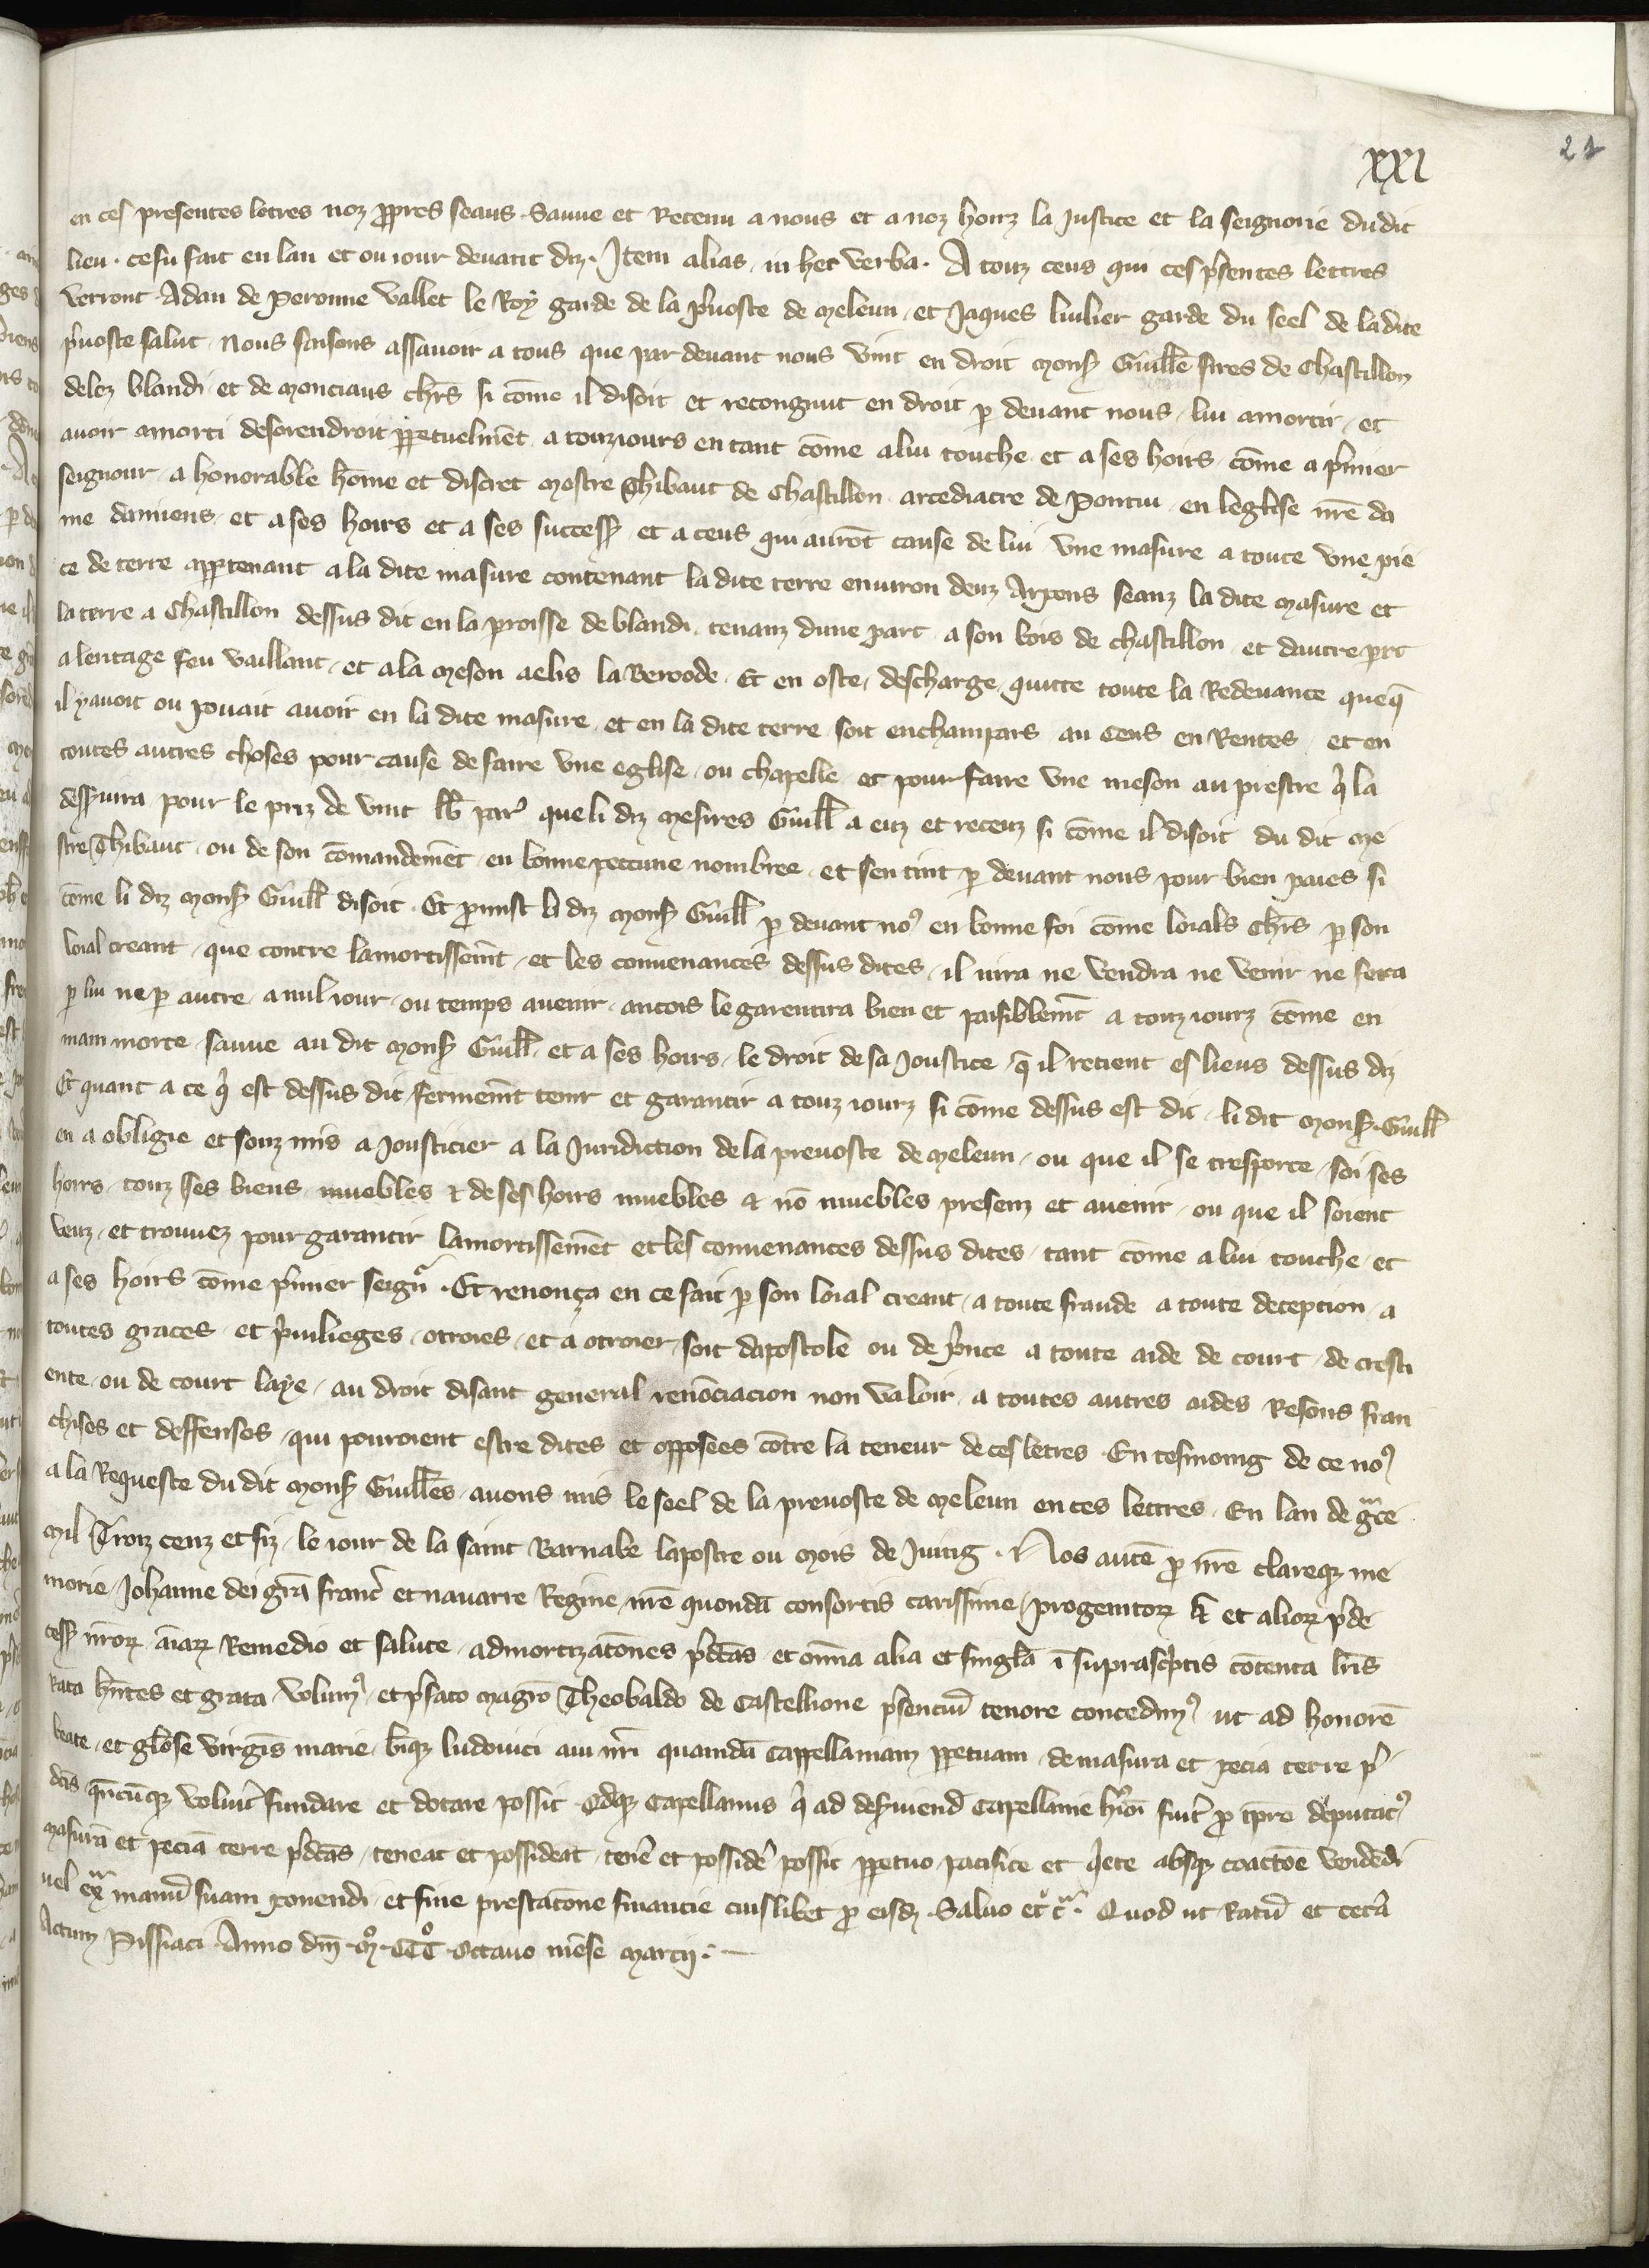 21
XXI
en ces presentes letres noz ꝓpres seaus. Sauue et Retenu a nous et a noz hoirz la Justice et la seignorie dudit
lieu. ce fu fait en lan et ou iour deuant diz. Item alias in hec verba. A touz ceus qui ces p̾sentes lettres
verront. Adan de Peronne vallet le Roy garde de la p̾uoste de Meleun, et Jaques liulier garde du seel de la dite
p̾uoste salut. Nous faisons assauoir a tous que par deuant nous vint en droit Monsꝭ Guill̃e sires de Chastillon
delez blandi et de Monciaus ch̃rs si cõme il disoit et recongnut en droit ꝑ deuant nous, lui amortir, et
auoir amorti desorendroit ꝑpetuelmẽt a touziours en tant cõme a lui touche et a ses hoirs cõme a p̾mier
seignour, a honorable hõme et discret Mestre Thibaut de Chastillon arcediacre de Pontiu en leglise nr̃e da
me damiens, et a ses hoirs et a ses successꝭ et a ceus qui aurõt cause de lui vne masure a toute vne pie
ce de terre apꝑtenant a la dite masure contenant la dite terre enuiron deuz Arpens seanz la dite Masure et
la terre a Chastillon dessus dit en la ꝑroisse de blandi, tenanz dune part a son bois de chastillon et dautre ꝑt
a leritage feu vaillant, et a la Meson aelis la Berode. Et en oste, descharge, quitte toute la Redeuance queq̃
il y auoit ou pouait auoir en la dite masure, et en la dite terre soit enchampars au Cens en Rentes et en
toutes autres choses pour cause de faire vne eglise ou chapelle, et pour faire vne meson au prestre q̾ la
desꝭuira pour le priz de vint lb̃ par̾ que li diz Mesires Guill̃ a euz et receuz si cõme il disoit du dit Me
stre Thibaut, ou de son cõmandemẽt en bonne peccune nombree, et sen tint ꝑ deuant nous pour bien paies si
cõme li diz Monsꝭ Guill̃ disoit. Et ꝓmist li diz Monsꝭ Guill̃ ꝑ deuant noꝰ en bonne foi cõme loials ch̃rs ꝑ son
loial creant, que contre lamortissem̃t, et les conuenances dessus dites, il nira ne vendra ne venir ne fera
ꝑ lui ne ꝑ autre a nul iour, ou temps auenir, ancois le garentira bien et paisiblem̃t a touz iourz cõme en
main morte, sauue au dit Monsꝭ Guill̃, et a ses hoirs, le droit de sa Joustice, q̃ il retient es lieus dessus diz
Et quant a ce q̾ est dessus dit fermem̃t tenir et garantir a touz iourz si cõme dessus est dit, li dit Monsꝭ. Guill̃
en a obligie et souz mis a Jousticier a la Juridiction de la preuoste de Meleun, ou que il se tresporte, soi ses
hoirs, touz ses biens, muebles & de ses hoirs muebles & nõ muebles presenz et auenir, ou que il soient
veuz, et trouuez pour garantir lamortissemẽt et les conuenances dessus dites, tant cõme a lui touche, et
a ses hoirs cõme p̾mier seign̾. Et renonça en ce fait ꝑ son loial creant, a toute fraude a toute deception, a
toutes graces, et p̾uilieges, otroies, et a otroier, soit dapostole ou de p̾nce a toute aide de court, de cresti
ente, ou de court laye, au droit disant general renõciacion non valoir, a toutes autres aides Resons fran
chises et deffenses, qui pouroient estre dites et opposees cõtre la teneur de ces letres. En tesmoing de ce noꝰ
a la Requeste du dit Monsꝭ Guill̃es, auons mis le seel de la preuoste de Meleun en ces lettres. En lan de gͣce
Mil Troiz cenz et siz, le iour de la saint Barnabe lapostre ou Mois de Juing. Nos autẽ ꝓ nr̃e clareqꝫ me
morie Johanne dei gr̃a franc̾ et nauarre Regine, nr̃e quondã consortis carissime, progenitoꝝ et alioꝝ p̾de
cessꝭ nr̃oꝝ aĩaꝝ Remedio et salute, admortizatõnes p̾dc̃as, et om̃a alia et singl̃a ĩ suprascͥptis cõtenta lr̃is
Rata hñtes et grata, volumꝰ, et p̾fato magr̃o Theobaldo de Castellione p̾sentiũ tenore concedimꝰ ut ad honorẽ
beate, et gl̃ose virgĩs marie, b̃iqꝫ ludouici aui nr̃i quamdã Cappellaniam ꝑpetuam, de masura et pecia terre p̾
dc̃is, qñcũqꝫ voluit̾ fundare et dotare possit. Q̃dqꝫ Capellanus q̾ ad desꝭuiend̃ Capellanie hͥ̃oi fuit̾ ꝓ tp̃re deputatꝰ
Masurã et peciã terre p̾dc̃as, teneat et possideat, tenẽ et possidẽ possit ꝑpetuo pacifice et q̾ete absqꝫ coactõe vendẽdi
uel exͣ manũ suam ponendi et sine prestatõne financie cuislibet ꝓ eisdꝫ. Saluo et͛ cͣ. Quod ut Ratũ et cet̾a
Actum Pissiaci. Anno dñi. Mº. CCCº Octauo mẽse Marcij.